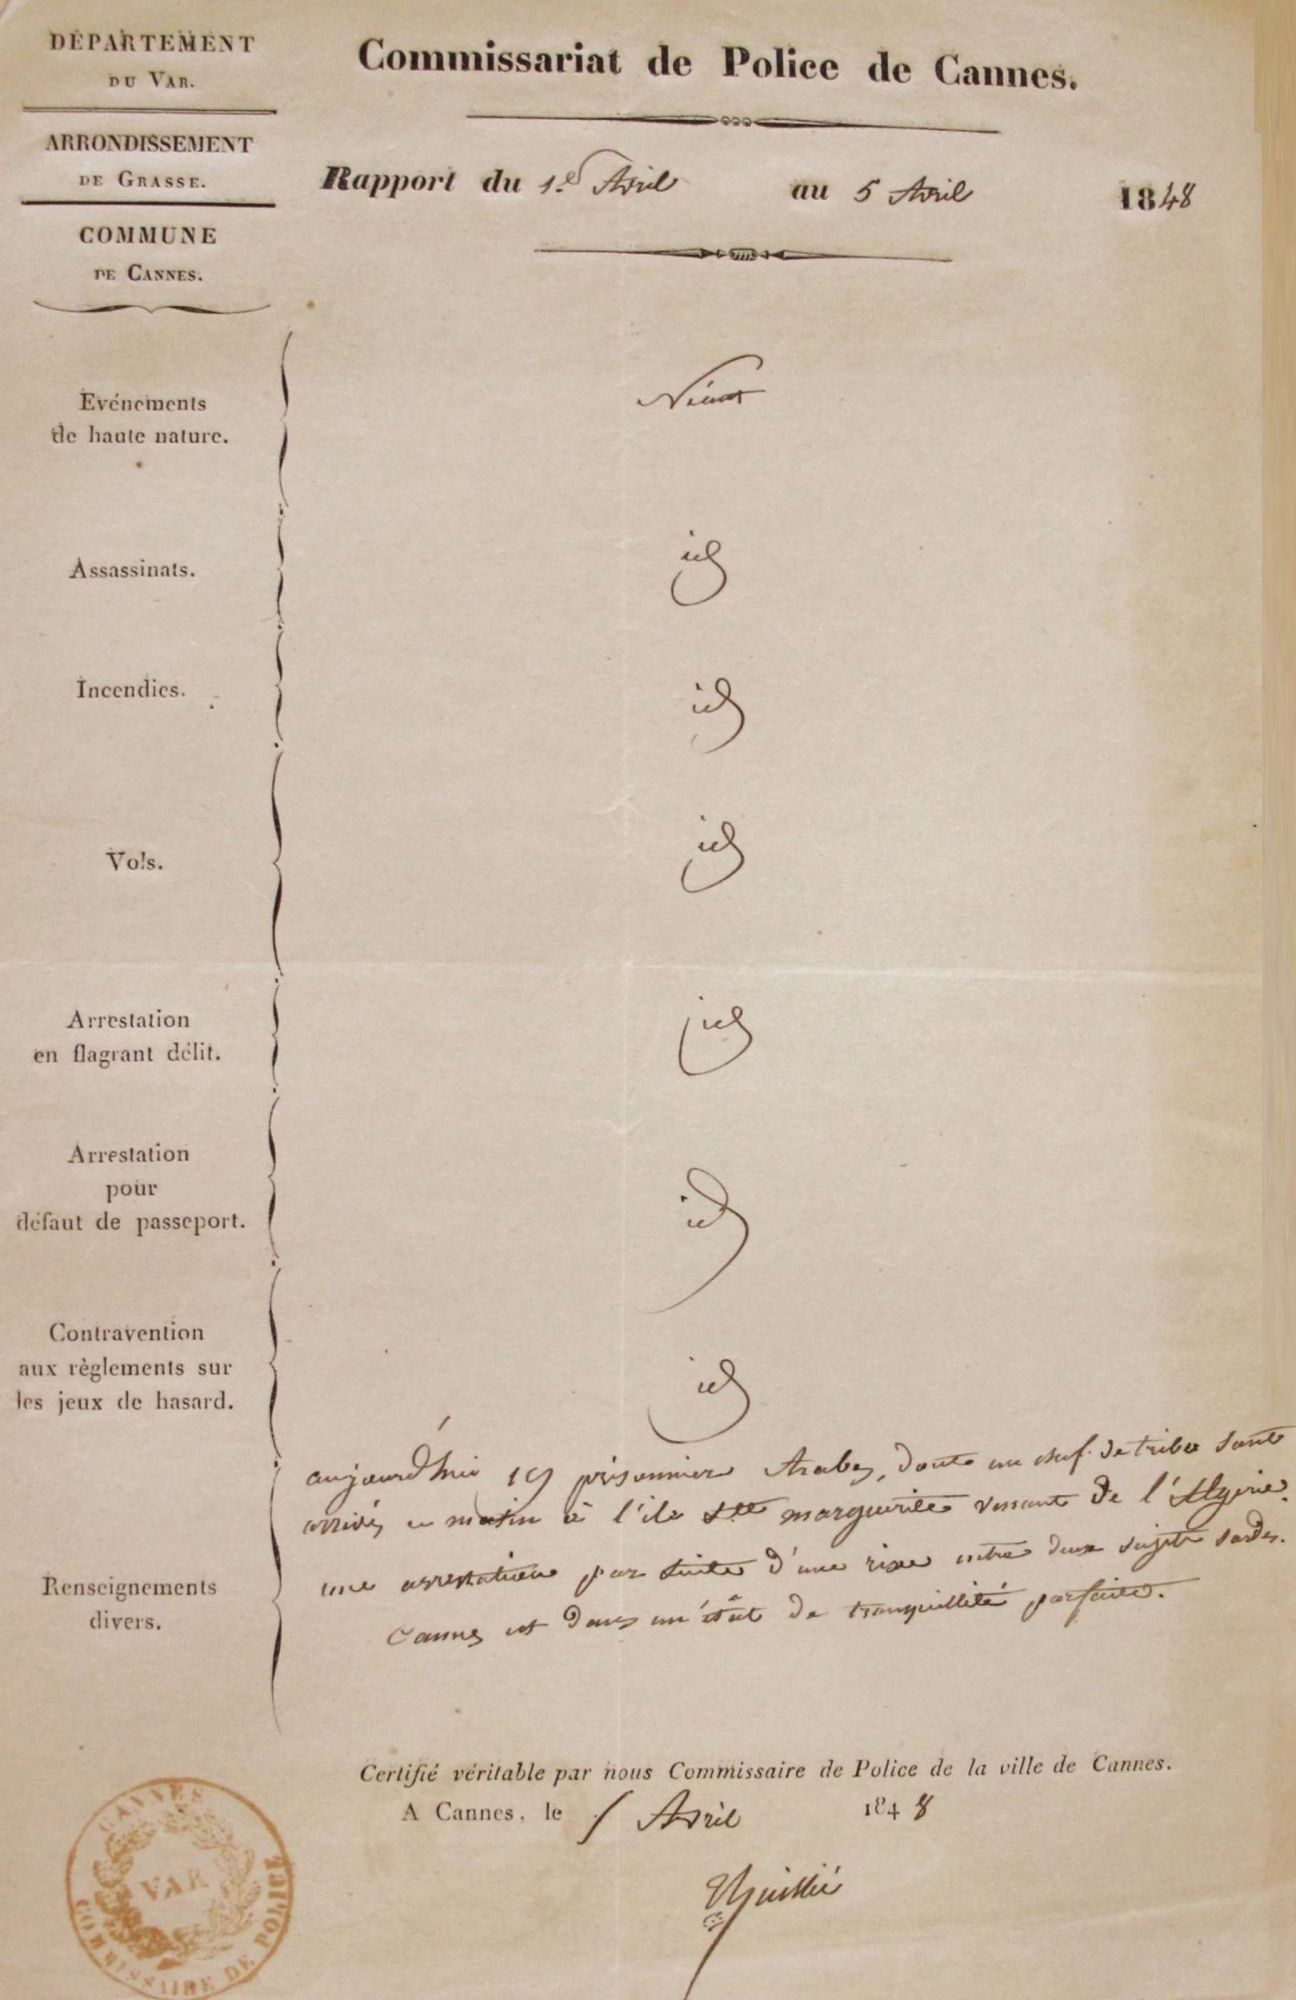 DÉPARTEMENT
DU VAR.
ARRONDISSEMENT
DE GRASSE.
COMMUNE
DE CANNES.
Commissariat de Police de Cannes.
Rapport du 1er Avril au 5 Avril 1848
Evénements
de haute nature.
Néant
Assassinats.
id
Incendies.
id
Vols.
id
Arrestation
en flagrant délit.
id
Arrestation
pour
défaut de passeport.
id
Contravention
aux règlements sur
les jeux de hasard.
id
Renseignements
divers.
aujourd'hui 19 prisonniers Arabes, dont un chef de tribu sont
arrivés ce matin à l'ile Ste marguerite venant de l'Algérie.
une arrestation par suite d'une rixe entre deux sujets sardes.
Cannes est dans un état de tranquillité parfaite.
Certifié véritable par nous Commissaire de Police de la ville de Cannes.
A Cannes, le 5 Avril 1848
CANNES
VAR
COMMISSAIRE DE POLICE